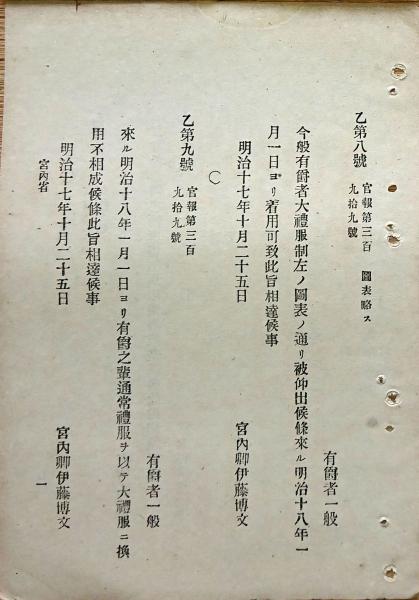 乙第八號 官報第三百九拾九號 圖表略ス
有爵者一般
今般有爵者大禮服制左ノ圖表ノ通リ被仰出候條來ル明治十八年一
月一日ヨリ着用可致此旨相達候事
明治十七年十月二十五日 宮內卿伊藤博文
○
乙第九號 官報第三百九拾九號
有爵者一般
來ル明治十八年一月一日ヨリ有爵之輩通常禮服ヲ以テ大禮服ニ換
用不相成候條此旨相達候事
明治十七年十月二十五日 宮內卿伊藤博文
宮內省 一